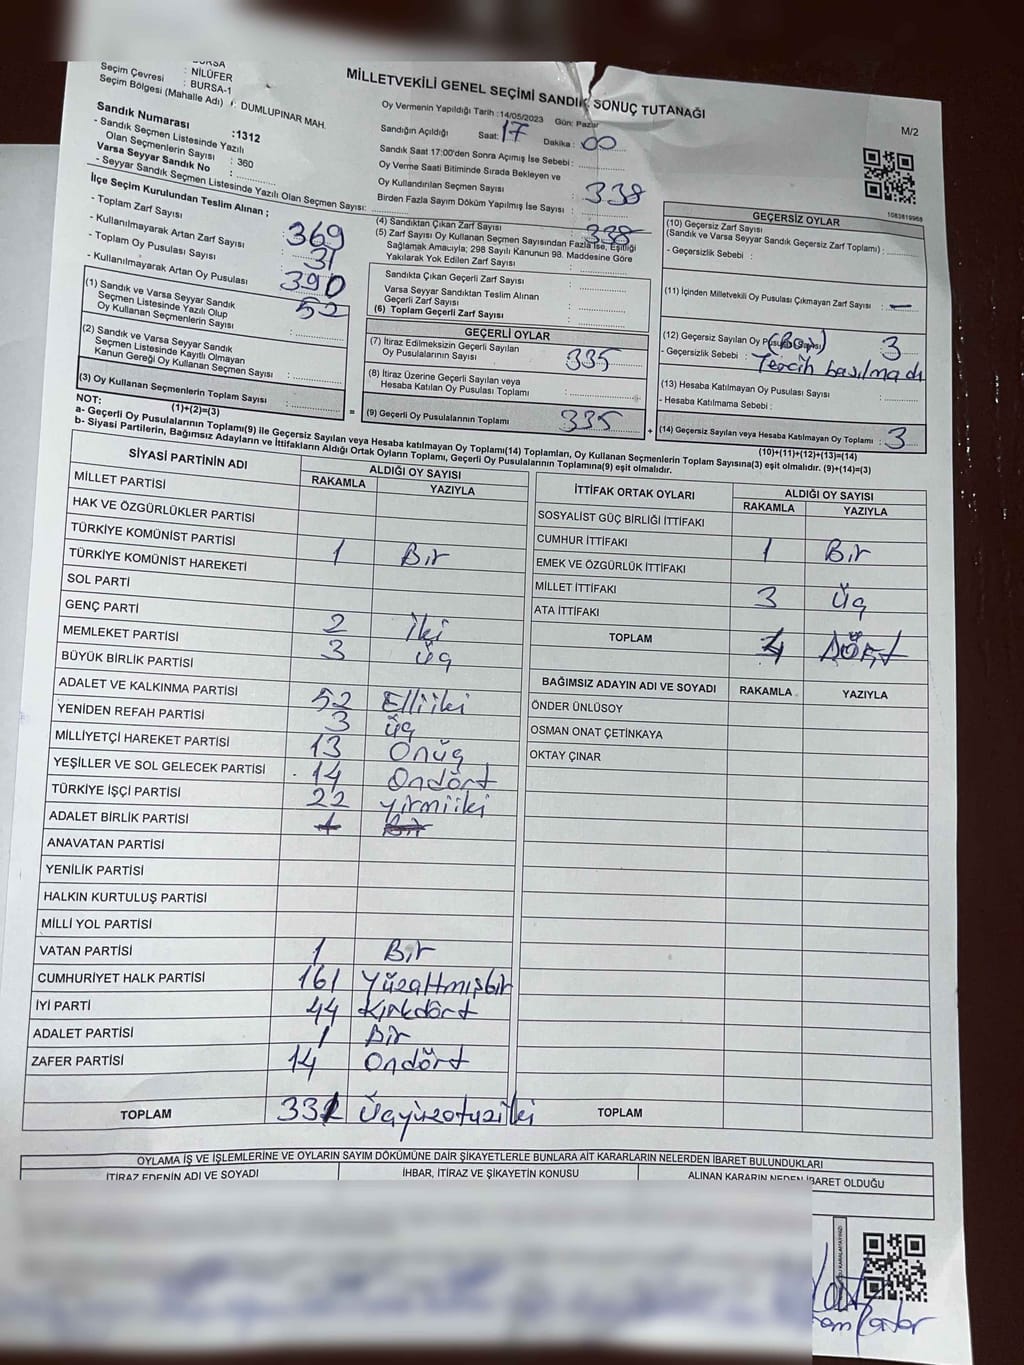 BURSA
Seçim Çevresi : NİLÜFER
: BURSA-1
Seçim Bölgesi (Mahalle Adı) : DUMLUPINAR MAH.
Sandık Numarası :1312
- Sandık Seçmen Listesinde Yazılı
Olan Seçmenlerin Sayısı : 360
Varsa Seyyar Sandık No
- Seyyar Sandık Seçmen Listesinde Yazılı Olan Seçmen Sayısı:
MİLLETVEKİLİ GENEL SEÇİMİ SANDIK SONUÇ TUTANAĞI
M/2
Oy Vermenin Yapıldığı Tarih :14/05/2023 Gün: Pazar
Sandığın Açıldığı Saat: 17 Dakika : 00
Sandık Saat 17:00'den Sonra Açımış İse Sebebi :
Oy Verme Saati Bitiminde Sırada Bekleyen ve
Oy Kullandırılan Seçmen Sayısı : 338
Birden Fazla Sayım Döküm Yapılmış İse Sayısı :
1083819968
İlçe Seçim Kurulundan Teslim Alınan ;
- Toplam Zarf Sayısı : 369
- Kullanılmayarak Artan Zarf Sayısı : 31
- Toplam Oy Pusulası Sayısı : 390
- Kullanılmayarak Artan Oy Pusulası : 52
(1) Sandık ve Varsa Seyyar Sandık
Seçmen Listesinde Yazılı Olup
Oy Kullanan Seçmenlerin Sayısı :
(2) Sandık ve Varsa Seyyar Sandık
Seçmen Listesinde Kayıtlı Olmayan
Kanun Gereği Oy Kullanan Seçmen Sayısı :
(3) Oy Kullanan Seçmenlerin Toplam Sayısı :
(1)+(2)=(3)
(4) Sandıktan Çıkan Zarf Sayısı : 338
(5) Zarf Sayısı Oy Kullanan Seçmen Sayısından Fazla İse, Eşitliği
Sağlamak Amacıyla; 298 Sayılı Kanunun 98. Maddesine Göre
Yakılarak Yok Edilen Zarf Sayısı :
Sandıkta Çıkan Geçerli Zarf Sayısı :
Varsa Seyyar Sandıktan Teslim Alınan
Geçerli Zarf Sayısı :
(6) Toplam Geçerli Zarf Sayısı :
GEÇERLİ OYLAR
(7) İtiraz Edilmeksizin Geçerli Sayılan
Oy Pusulalarının Sayısı : 335
(8) İtiraz Üzerine Geçerli Sayılan veya
Hesaba Katılan Oy Pusulası Toplamı :
= (9) Geçerli Oy Pusulalarının Toplamı : 335 +
GEÇERSİZ OYLAR
(10) Geçersiz Zarf Sayısı
(Sandık ve Varsa Seyyar Sandık Geçersiz Zarf Toplamı) :
- Geçersizlik Sebebi :
(11) İçinden Milletvekili Oy Pusulası Çıkmayan Zarf Sayısı : -
(12) Geçersiz Sayılan Oy Pusulası Sayısı (Boş) 3
- Geçersizlik Sebebi : Tercih basılmadı
(13) Hesaba Katılmayan Oy Pusulası Sayısı :
- Hesaba Katılmama Sebebi :
(14) Geçersiz Sayılan veya Hesaba Katılmayan Oy Toplamı : 3
(10)+(11)+(12)+(13)=(14)
NOT:
a- Geçerli Oy Pusulalarının Toplamı(9) ile Geçersiz Sayılan veya Hesaba katılmayan Oy Toplamı(14) Toplamları, Oy Kullanan Seçmenlerin Toplam Sayısına(3) eşit olmalıdır. (9)+(14)=(3)
b- Siyasi Partilerin, Bağımsız Adayların ve İttifakların Aldığı Ortak Oyların Toplamı, Geçerli Oy Pusulalarının Toplamına(9) eşit olmalıdır.
SİYASİ PARTİNİN ADI ALDIĞI OY SAYISI
RAKAMLA YAZIYLA
MİLLET PARTİSİ
HAK VE ÖZGÜRLÜKLER PARTİSİ
TÜRKİYE KOMÜNİST PARTİSİ
TÜRKİYE KOMÜNİST HAREKETİ 1 Bir
SOL PARTİ
GENÇ PARTİ
MEMLEKET PARTİSİ 2 İki
BÜYÜK BİRLİK PARTİSİ 3 Üç
ADALET VE KALKINMA PARTİSİ 52 Elliiki
YENİDEN REFAH PARTİSİ 3 Üç
MİLLİYETÇİ HAREKET PARTİSİ 13 Onüç
YEŞİLLER VE SOL GELECEK PARTİSİ 14 Ondört
TÜRKİYE İŞÇİ PARTİSİ 22 Yirmiiki
ADALET BİRLİK PARTİSİ 1 Bir
ANAVATAN PARTİSİ
YENİLİK PARTİSİ
HALKIN KURTULUŞ PARTİSİ
MİLLİ YOL PARTİSİ
VATAN PARTİSİ 1 Bir
CUMHURİYET HALK PARTİSİ 161 Yüzaltmışbir
İYİ PARTİ 44 Kırkdört
ADALET PARTİSİ 1 Bir
ZAFER PARTİSİ 14 Ondört
TOPLAM 331 Üçyüzotuziki
İTTİFAK ORTAK OYLARI ALDIĞI OY SAYISI
RAKAMLA YAZIYLA
SOSYALİST GÜÇ BİRLİĞİ İTTİFAKI
CUMHUR İTTİFAKI 1 Bir
EMEK VE ÖZGÜRLÜK İTTİFAKI
MİLLET İTTİFAKI 3 Üç
ATA İTTİFAKI
TOPLAM 4 Dört
BAĞIMSIZ ADAYIN ADI VE SOYADI RAKAMLA YAZIYLA
ÖNDER ÜNLÜSOY
OSMAN ONAT ÇETİNKAYA
OKTAY ÇINAR
TOPLAM
OYLAMA İŞ VE İŞLEMLERİNE VE OYLARIN SAYIM DÖKÜMÜNE DAİR ŞİKAYETLERLE BUNLARA AİT KARARLARIN NELERDEN İBARET BULUNDUKLARI
İTİRAZ EDENİN ADI VE SOYADI İHBAR, İTİRAZ VE ŞİKAYETİN KONUSU ALINAN KARARIN NEDEN İBARET OLDUĞU